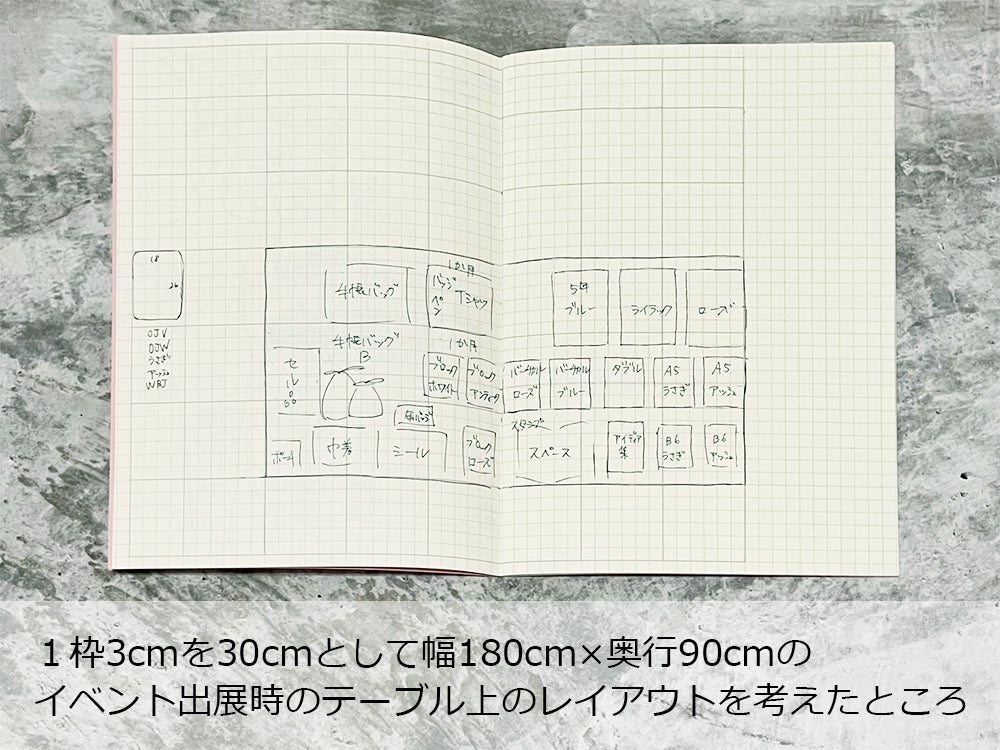 18
26
OJV
OJW
うさぎ
アッシュ
WRJ
手帳バッグ
1か月
バッジ
ペン
Tシャツ
手帳バッグ
B
セール品
1か月
ブロック
ホワイト
ブロック
アンティーク
缶バッジ
ポーチ
巾着
シール
ブロック
ローズ
5年
ブルー
ライラック
ローズ
バーチカル
ローズ
バーチカル
ブルー
ダブル
A5
うさぎ
A5
アッシュ
スタンプ
スペース
アイディア
集
B6
うさぎ
B6
アッシュ
１枠3cmを30cmとして幅180cm×奥行90cmの
イベント出展時のテーブル上のレイアウトを考えたところ